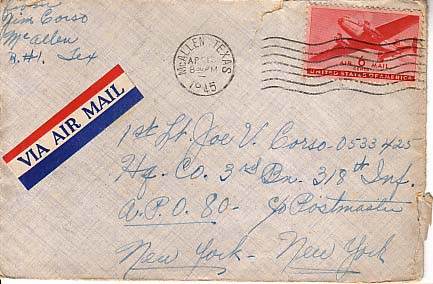 Jim Corso
McAllen
R.#1. Tex
McALLEN, TEXAS
APR
8 PM
1945
6¢
AIR MAIL
UNITED STATES OF AMERICA
VIA AIR MAIL
1st Lt. Joe V. Corso 0533425
Hq. Co. 3rd Bn. 318th Inf.
A.P.O. 80- c/o Postmaster
New York - New York